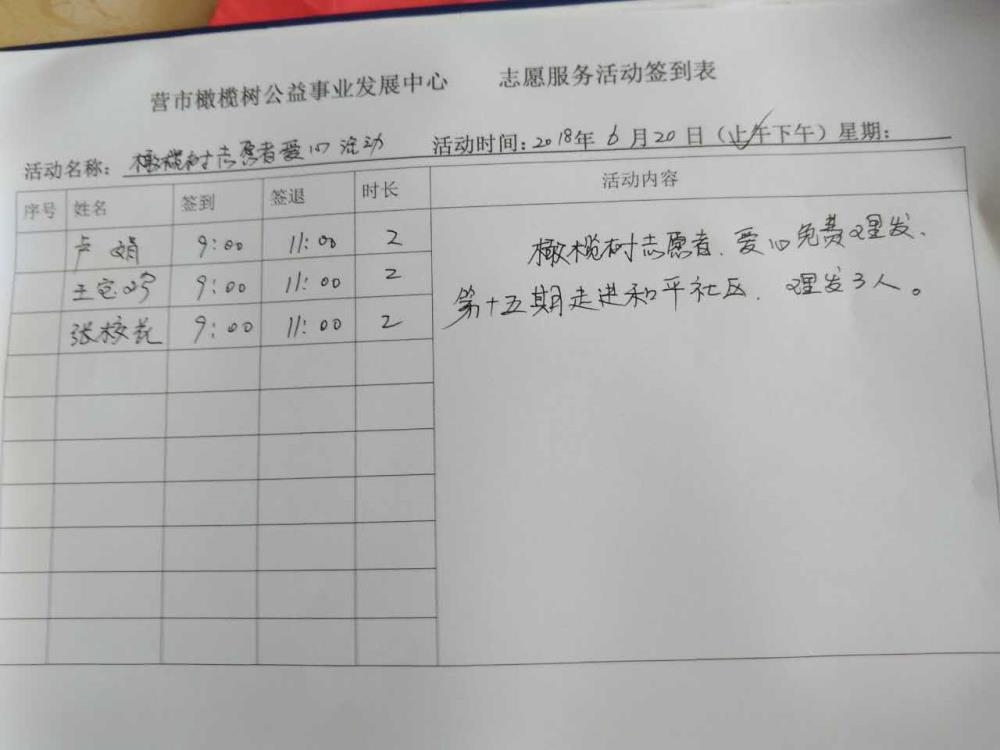 营市橄榄树公益事业发展中心 志愿服务活动签到表
活动名称: 橄榄树志愿者爱心活动 活动时间:2018年6月20日(上午下午)星期:
序号 姓名 签到 签退 时长 活动内容
卢娟 9:00 11:00 2
王宝宁 9:00 11:00 2
张校花 9:00 11:00 2
橄榄树志愿者、爱心免费理发、
第十五期走进和平社区、理发3人。